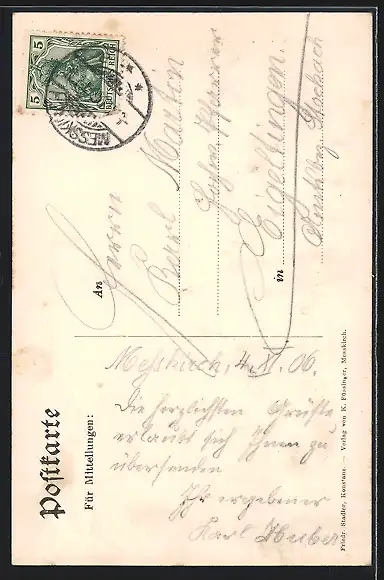 Postkarte
Für Mitteilungen:
Messkirch, 4. XI. 06.
Die herzlichsten Grüße
erlaubt sich Ihnen zu
übersenden
Ihr ergebener
Karl Huber
5 DEUTSCHES REICH 5
MESSK
An
Herrn
Karl Martin
in
Eigeltingen.
Stockach
Friedr. Stadler, Konstanz. — Verlag von K. Füssinger, Messkirch.